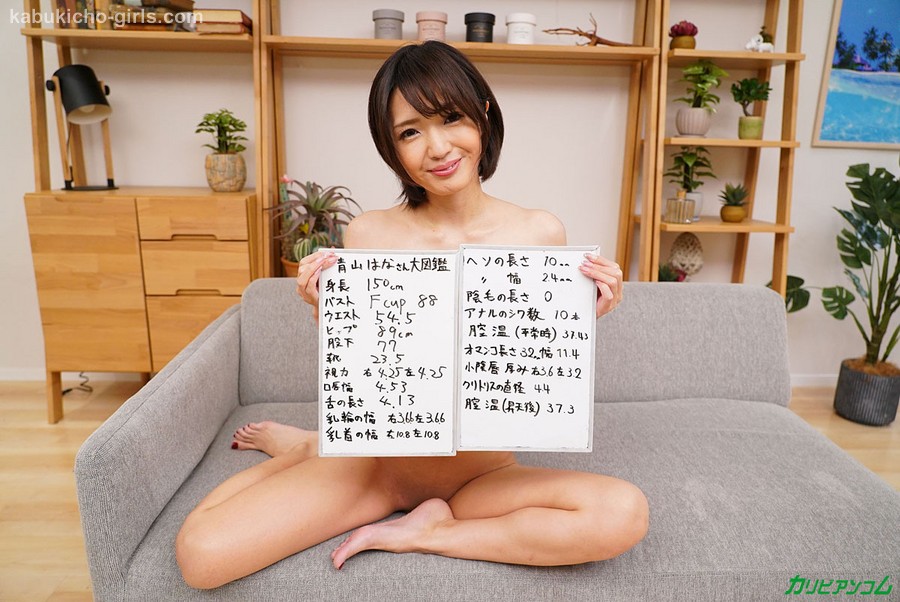 kabukicho-girls.com
青山はなさん大図鑑
身長 150cm
バスト Fcup 88
ウエスト 54.5
ヒップ 89cm
股下 77
靴 23.5
視力 右4.25 左4.25
口唇幅 4.53
舌の長さ 4.13
乳輪の幅 右3.66 左3.66
乳首の幅 右10.8 左10.8
ヘソの長さ 10mm
〃 幅 24mm
陰毛の長さ 0
アナルのシワ数 10本
膣温(平常時) 37.43
オマンコ長さ32mm幅11.4
小陰唇 厚み 右3.6 左3.2
クリトリスの直径 4.4
膣温(昇天後) 37.3
カリビアンコム